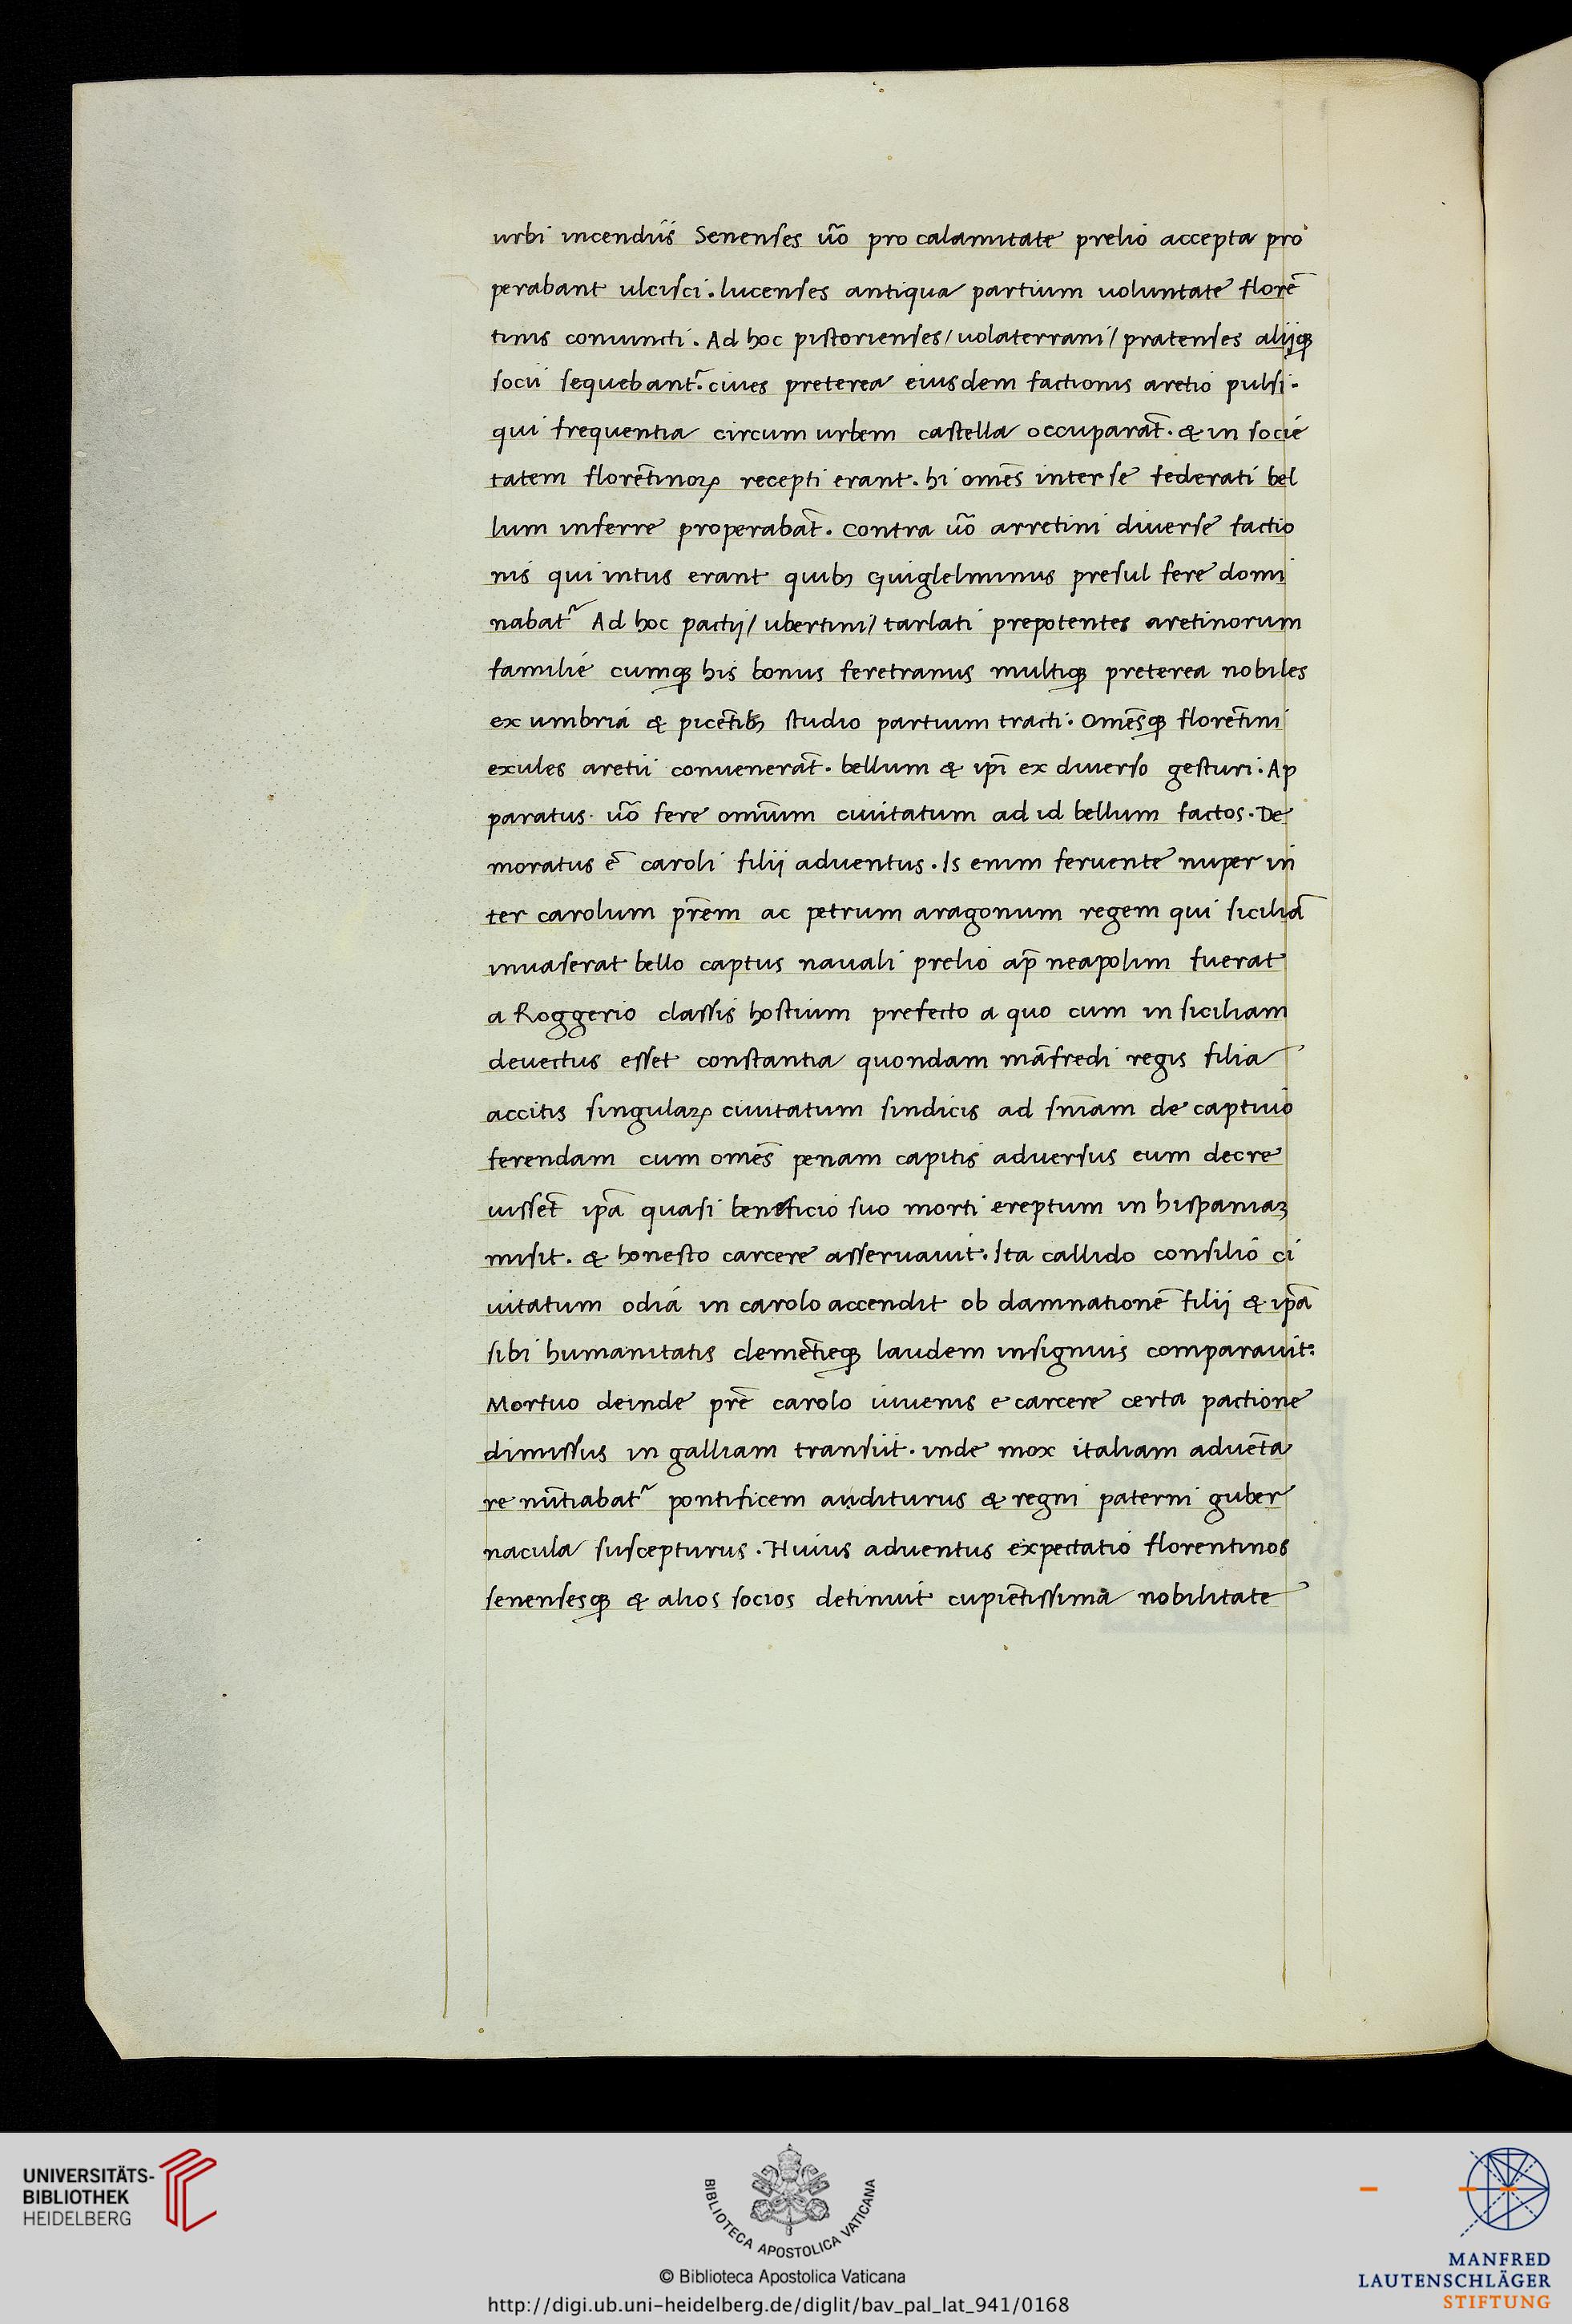 urbi incendiis Senenses uõ pro calamitate prelio accepta pro
perabant ulcisci. lucenses antiqua partium uoluntate florẽ
tinis coniuncti. Ad hoc pistorienses/ uolaterrani/ pratenses aliiqꝫ
socii sequebant᷑. ciues preterea eiusdem factionis aretio pulsi.
qui frequentia circum urbem castella occuparãt. & in socie
tatem florẽtinoꝝ recepti erant. hi omẽs inter se federati bel
lum inferre properabãt. contra uõ arretini diuerse factio
nis qui intus erant quibꝫ Guiglelminus presul fere domi
nabat᷑ Ad hoc pactij/ ubertini/ tarlati prepotentes aretinorum
familie cumqꝫ his bonus feretranus multiqꝫ preterea nobiles
ex umbria & picẽtibꝫ studio partium tracti. omẽsqꝫ florẽtini
exules aretii conuenerãt. bellum & ip̃i ex diuerso gesturi. Ap
paratus uõ fere omiũm ciuitatum ad id bellum factos. De
moratus ẽ caroli filij aduentus. Is enim feruente nuper in
ter carolum pr̃em ac petrum aragonum regem qui siciliã
inuaserat bello captus nauali prelio ap̃ neapolim fuerat
a Roggerio classis hostium prefecto a quo cum in siciliam
deuectus esset constantia quondam mãfredi regis filia
accitis singulaꝝ ciuitatum sindicis ad sñiam de captiuo
ferendam cum omẽs penam capitis aduersus eum decre
uissẽt ip̃a quasi beneficio suo morti ereptum in hispaniaꝫ
misit. & honesto carcere asseruauit. Ita callido consilio ci
uitatum odia in carolo accendit ob damnationẽ filij & ip̃a
sibi humanitatis clemẽtieqꝫ laudem insignius comparauit:
Mortuo deinde pr̃e carolo iuuenis e carcere certa pactione
dimissus in galliam transiit. inde mox italiam aduẽta
re nũtiabat᷑ pontificem auditurus & regni paterni guber
nacula suscepturus. Huius aduentus expectatio florentinos
senensesqꝫ & alios socios detinuit cupiẽtissima nobilitate
UNIVERSITÄTS-
BIBLIOTHEK
HEIDELBERG
BIBLIOTECA APOSTOLICA VATICANA
© Biblioteca Apostolica Vaticana
http://digi.ub.uni-heidelberg.de/diglit/bav_pal_lat_941/0168
MANFRED
LAUTENSCHLÄGER
STIFTUNG